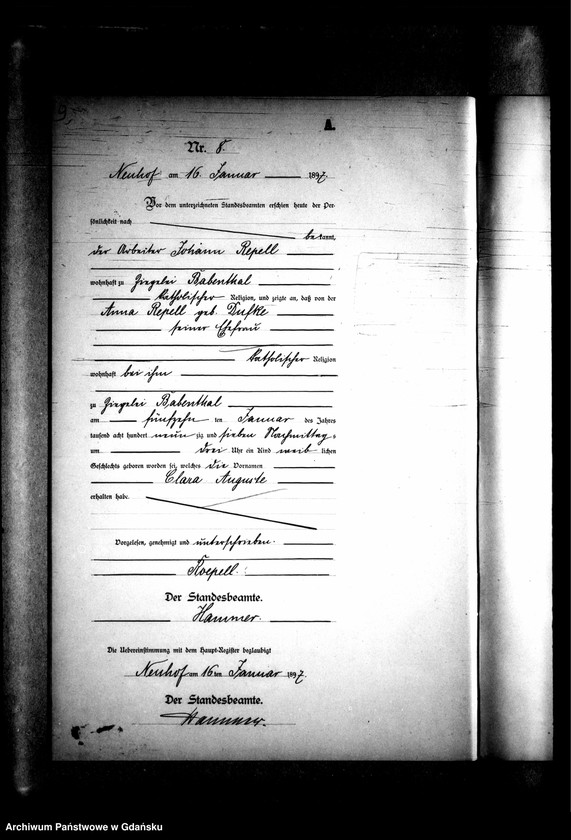 9.
A.
Nr. 8.
Neuhof am 16. Januar 1897.
Vor dem unterzeichneten Standesbeamten erschien heute der Per-
sönlichkeit nach
bekannt,
der Arbeiter Johann Repell
wohnhaft zu Ziegelei Babenthal
katholischer Religion, und zeigte an, daß von der
Anna Repell geb. Dufke
seiner Ehefrau
katholischer Religion
wohnhaft bei ihm
zu Ziegelei Babenthal
am fünfzehn ten Januar des Jahres
tausend acht hundert neun zig und sieben Nachmittags
um drei Uhr ein Kind weib lichen
Geschlechts geboren worden sei, welches die Vornamen
Clara Auguste
erhalten habe.
Vorgelesen, genehmigt und unterschrieben.
Roepell.
Der Standesbeamte.
Hammer.
Die Uebereinstimmung mit dem Haupt-Register beglaubigt
Neuhof am 16 ten Januar 1897.
Der Standesbeamte.
Hammer.
Archiwum Państwowe w Gdańsku